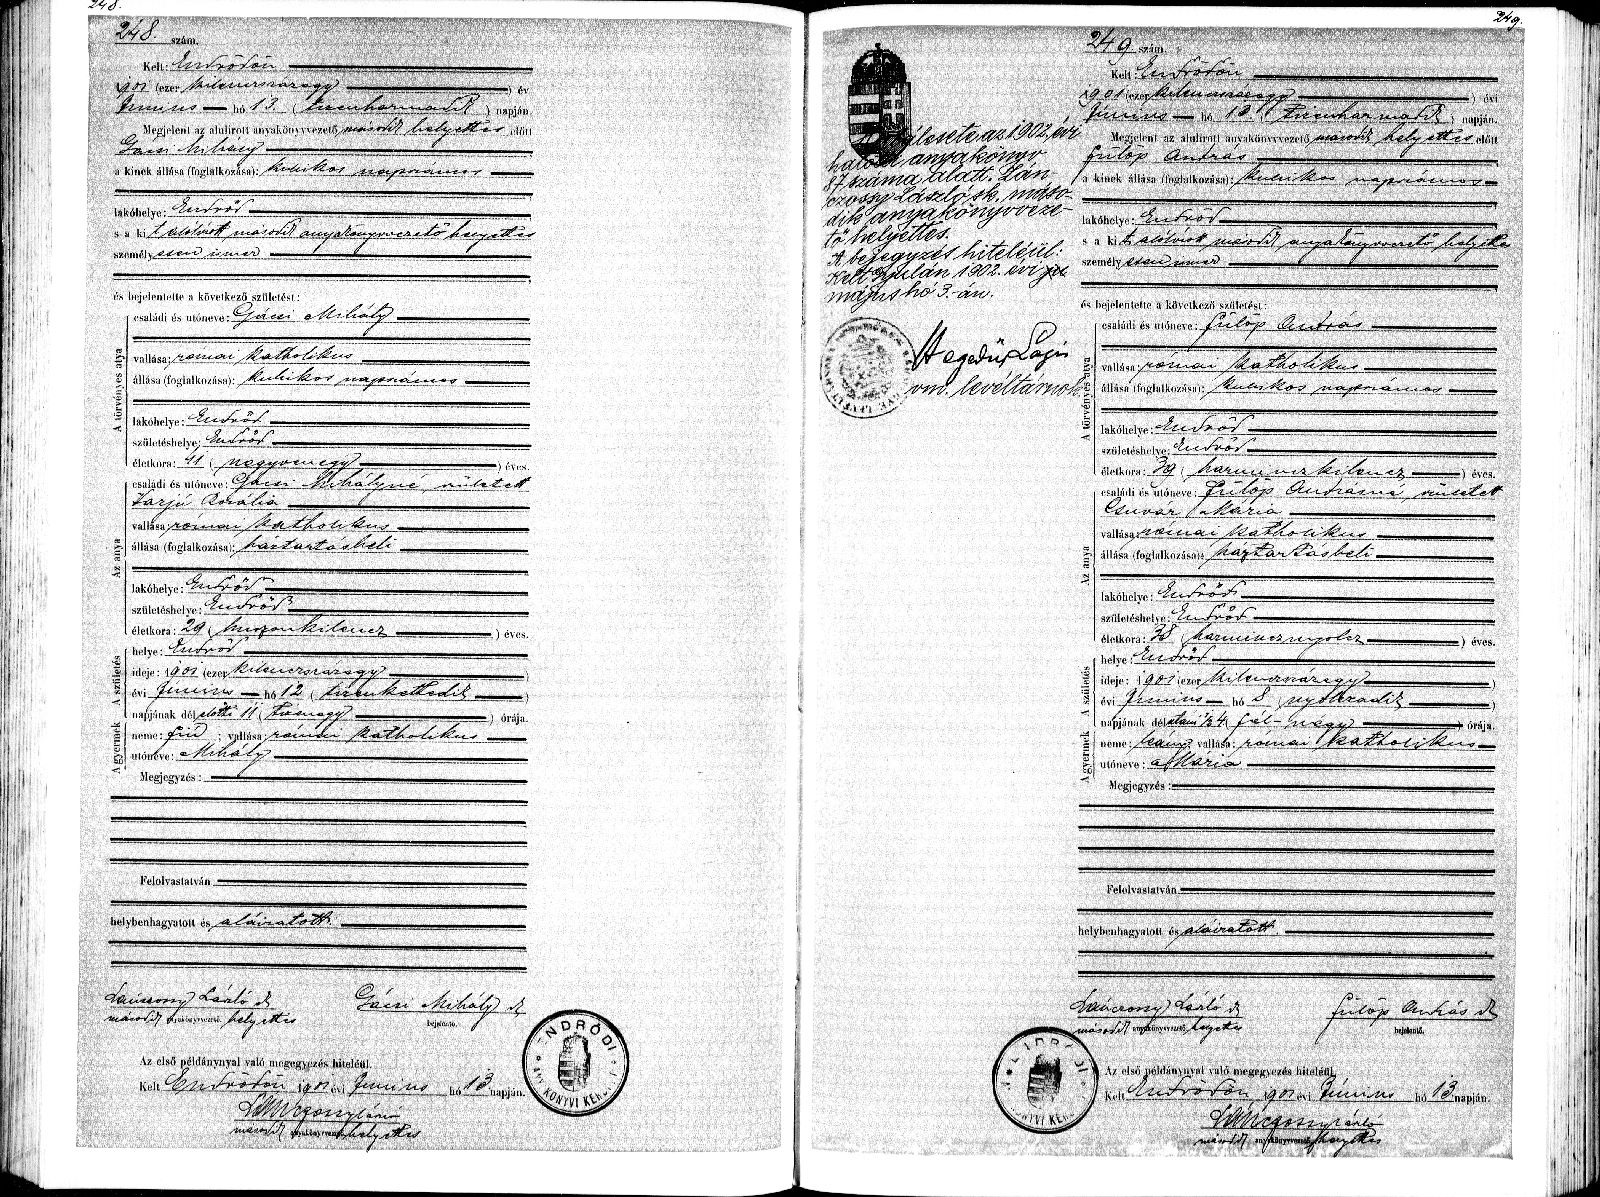 248.
248. szám.
Kelt: Endrődön
1901 (ezer kilenczszázegy) év
Június hó 13. (tizenharmadik) napján.
Megjelent az alulirott anyakönyvvezető második helyettes előtt
Gácsi Mihály
a kinek állása (foglalkozása): kubikos napszámos
lakóhelye: Endrőd
s a kit alólirott második anyakönyvvezető helyettes
személyesen ismer
és bejelentette a következő születést:
A törvényes atya
családi és utóneve: Gácsi Mihály
vallása: római katholikus
állása (foglalkozása): kubikos napszámos
lakóhelye: Endrőd
születéshelye: Endrőd
életkora: 41 (negyvenegy) éves.
Az anya
családi és utóneve: Gácsi Mihályné, született
Rozália
vallása: római katholikus
állása (foglalkozása): háztartásbeli
lakóhelye: Endrőd
születéshelye: Endrőd
életkora: 29 (huszonkilencz) éves.
A születés
helye: Endrőd
ideje: 1901 (ezer kilenczszázegy)
évi Június hó 12 (tizenkettedik)
napjának dél előtti 11 (tizenegy) órája.
A gyermek
neme: fiú; vallása: római katholikus
utóneve: Mihály
Megjegyzés:
Felolvastatván
helybenhagyatott és aláiratott.
Lánczossy László sk
második anyakönyvvezető helyettes
Gácsi Mihály sk
bejelentő.
Az első példánynyal való megegyezés hiteléül.
Kelt Endrődön 1901 évi Június hó 13 napján.
Lánczossy László
második anyakönyvvezető helyettes
ENDRŐDI
ANYAKÖNYVI KERÜLET
249.
249 szám.
Kelt: Endrődön
1901 (ezer kilenczszázegy) évi
Június hó 13. (tizenharmadik) napján.
Megjelent az alulirott anyakönyvvezető második helyettes előtt
Fülöp András
a kinek állása (foglalkozása): kubikos napszámos
lakóhelye: Endrőd
s a kit alólirott második anyakönyvvezető helyettes
személyesen ismer
és bejelentette a következő születést:
A törvényes atya
családi és utóneve: Fülöp András
vallása: római katholikus
állása (foglalkozása): kubikos napszámos
lakóhelye: Endrőd
születéshelye: Endrőd
életkora: 39 (harminczkilencz) éves.
Az anya
családi és utóneve: Fülöp Andrásné született
Csuvar Mária
vallása: római katholikus
állása (foglalkozása): háztartásbeli
lakóhelye: Endrőd
születéshelye: Endrőd
életkora: 38 (harmincznyolcz) éves.
A születés
helye: Endrőd
ideje: 1901 (ezer kilenczszázegy)
évi Június hó 8 (nyolczadik)
napjának dél utani ½4 (fél-négy) órája.
A gyermek
neme: leány vallása: római katholikus
utóneve: Mária
Megjegyzés:
Felolvastatván
helybenhagyatott és aláiratott.
Lánczossy László sk
második anyakönyvvezető, helyettes
Fülöp András sk
bejelentő.
Az első példánynyal való megegyezés hiteléül.
Kelt Endrődön 1901 évi Június hó 13 napján.
Lánczossy László
második anyakönyvvezető helyettes
az 1902. évi
halotti anyakönyv
87 száma alatt. Lán-
czossy László sk. máso-
dik anyakönyvveze-
tő helyettes.
A bejegyzés hiteléül:
Kelt Gyulán 1902. évi
május hó 3.-án.
Hegedüs Lajos
vm. levéltárnok